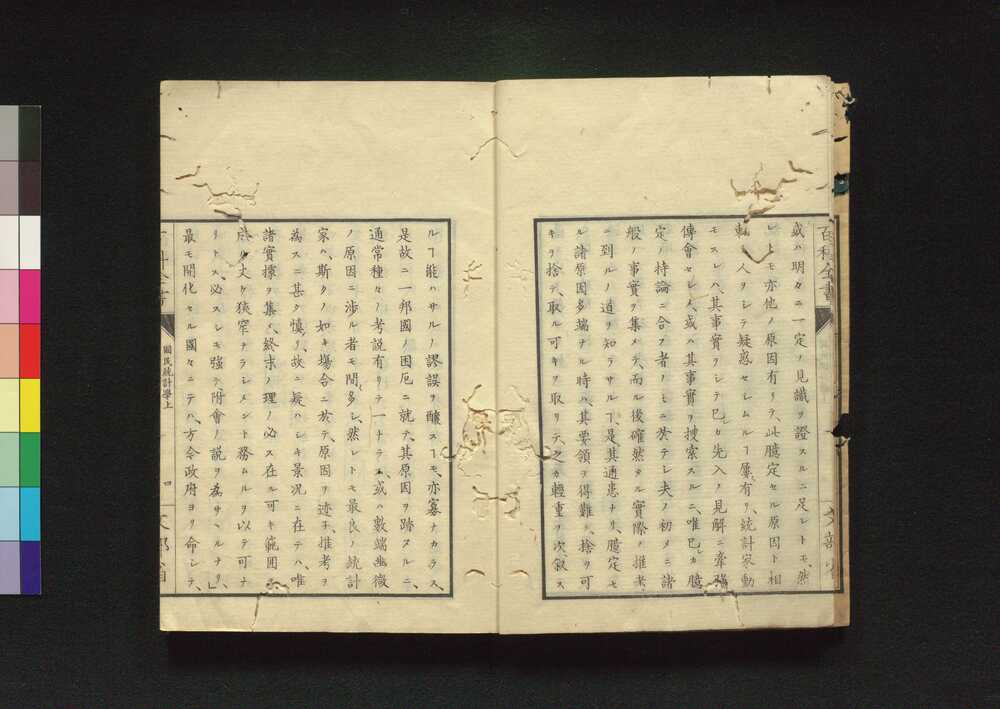 百科全書
文部省
或ハ明々ニ一定ノ見識ヲ證スルニ足レトモ、然
レトモ亦他ノ原因有リテ、此臆定セル原因ト相
人ヲシテ疑惑セシムルヿ屢〻有リ、統計家動
モスレハ、其事實ヲシテ己カ先入ノ見解ニ牽強
傅會セシメ、或ハ其事實ヲ捜索スルニ、唯己カ臆
定ノ持論ニ合フ者ノミニ於テシ、夫ノ初メニ諸
般ノ事實ヲ集メテ、而ル後確然タル實際ノ推考
ニ到ルノ道ヲ知ラサルヿ、是其通患ナリ、臆定セ
ル諸原因多端ナル時ハ、其要領ヲ得難シ、捨ツ可
キヲ捨テ、取ル可キヲ取リテ、之カ輕重ヲ次叙ス
ルヿ能ハサルノ謬誤ヲ釀スヿモ、亦寡ナカラス、
是故ニ一邦國ノ困厄ニ就テ、其原因ヲ踏スルニ、
通常種々ノ考説有リテ一ナラス、或ハ數端幽微
ノ原因ニ渉ル者モ間〻多シ、然レトモ最良ノ統計
家ハ、斯クノ如キ場合ニ於テ、原因ヲ迹子、推考ヲ
為スニ甚タ慎メリ、故ニ疑ハシキ景況ニ在テハ、唯
諸實據ヲ集メ、終末ノ理ノ必ス在ル可キ範囲ヲ
成ル丈ケ狹窄ナラシメント務ムルヲ以テ可ナ
リトス、必スシモ強テ附會ノ説ヲ為サヽルナリ、
最モ開化セル國々ニテハ、方今政府ヨリ命シテ、
國民統計學上
四